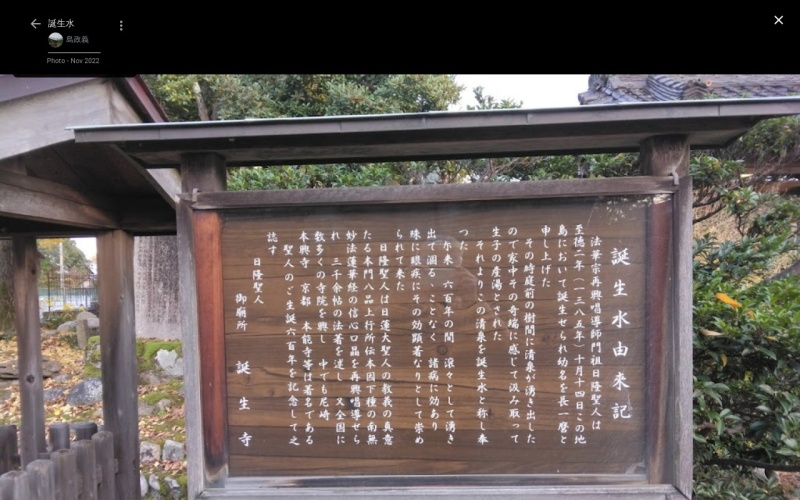 誕生水
島政義
Photo - Nov 2022
誕生水由来記
法華宗再興唱導師門祖日隆聖人は
至徳二年（一三八五年）十月十四日この地
島において誕生せられ幼名を長一麿と
申し上げた
その時庭前の樹間に清泉が湧き出した
ので家中その奇瑞に感じて汲み取って
生子の産湯とされた
それよりこの清泉を誕生水と称し奉
つた
尓来 六百年の間 滾々として湧き
出て涸るゝことなく 諸病に効あり
殊に眼疾にその効顕著なりとして崇め
られて来た
日隆聖人は日蓮大聖人の教義の真意
たる本門八品上行所伝本因下種の南無
妙法蓮華経の信心口唱を再興唱導せら
れ 三千余帖の法著を述し 又全国に
数多くの寺院を興し 中でも尼崎
本興寺 京都 本能寺等は著名である
聖人のご生誕六百年を記念して之
誌す
日隆聖人
御廟所 誕生寺